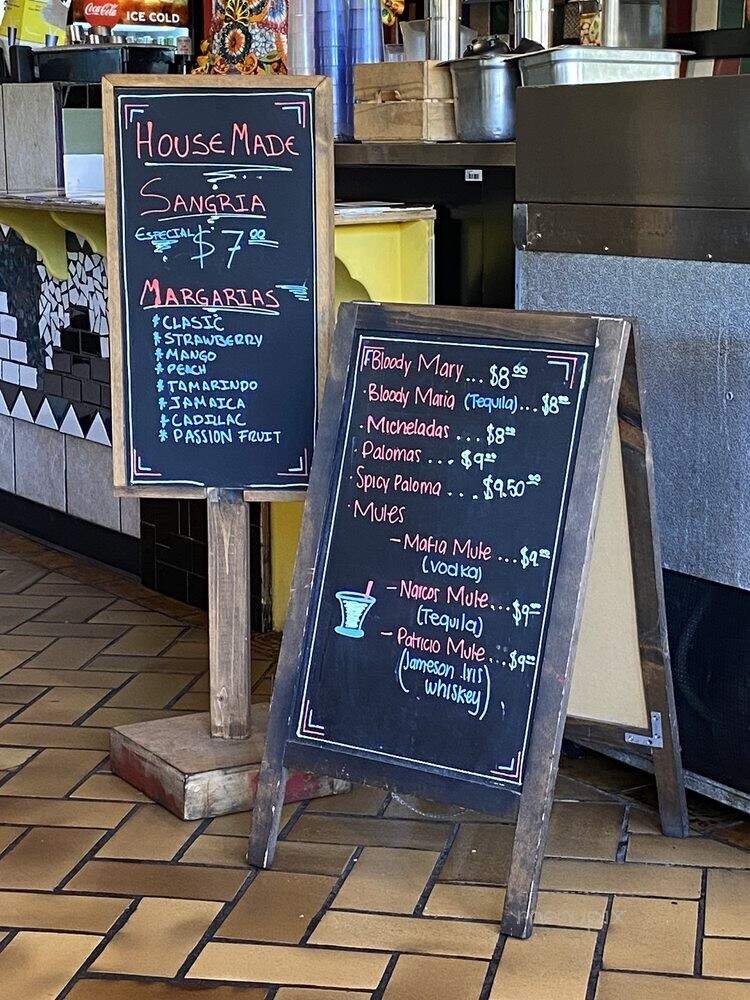 Coca-Cola
ICE COLD
HOUSE MADE
SANGRIA
ESPECIAL $7.00
MARGARIAS
* CLASIC
* STRAWBERRY
* MANGO
* PEACH
* TAMARINDO
* JAMAICA
* CADILLAC
* PASSION FRUIT
· Bloody Mary... $8.00
· Bloody Maria (Tequila)... $8.00
· Micheladas ... $8.00
· Palomas ... $9.00
· Spicy Paloma .... $9.50
· Mules
- Mafia Mule ... $9.00
(vodka)
- Narcos Mule... $9.00
(Tequila)
- Patricio Mule... $9.00
(Jameson Iris
whiskey)